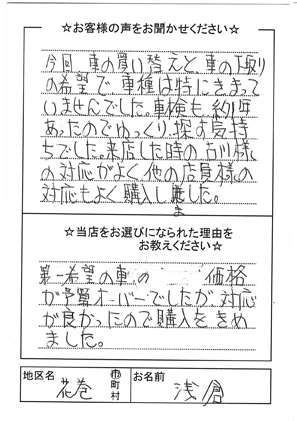 ☆お客様の声をお聞かせください☆
今回、車の買い替えと車の下取り
の希望で車種は特にきまって
いませんでした。車検も約1年
あったのでゆっくり探す気持
ちでした。来店した時の古川様
の対応がよく他の店員様の
対応もよく購入しました。
☆当店をお選びになられた理由を
お教えください☆
第一希望の車の 価格
が予算オーバーでしたが、対応
が良かったので購入をきめ
ました。
地区名 花巻 市町村 お名前 浅倉